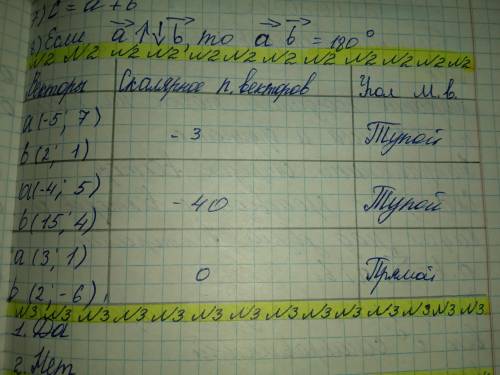 7) c = a + b
8) Если a ↑↓ b, то a b = 180°
N2 N2 N2 N2 N2 N2 N2 N2 N2 N2 N2 N2 N2
Векторы Скалярное п. векторов Угол м. в.
a (-5; 7)
b (2; 1) - 3 Тупой
a(-4; 5)
b (15; 4) - 40 Тупой
a (3; 1)
b (2; -6) 0 Прямой
N3 N3 N3 N3 N3 N3 N3 N3 N3 N3 N3 N3 N3 N3 N3
1. Да
2. Нет